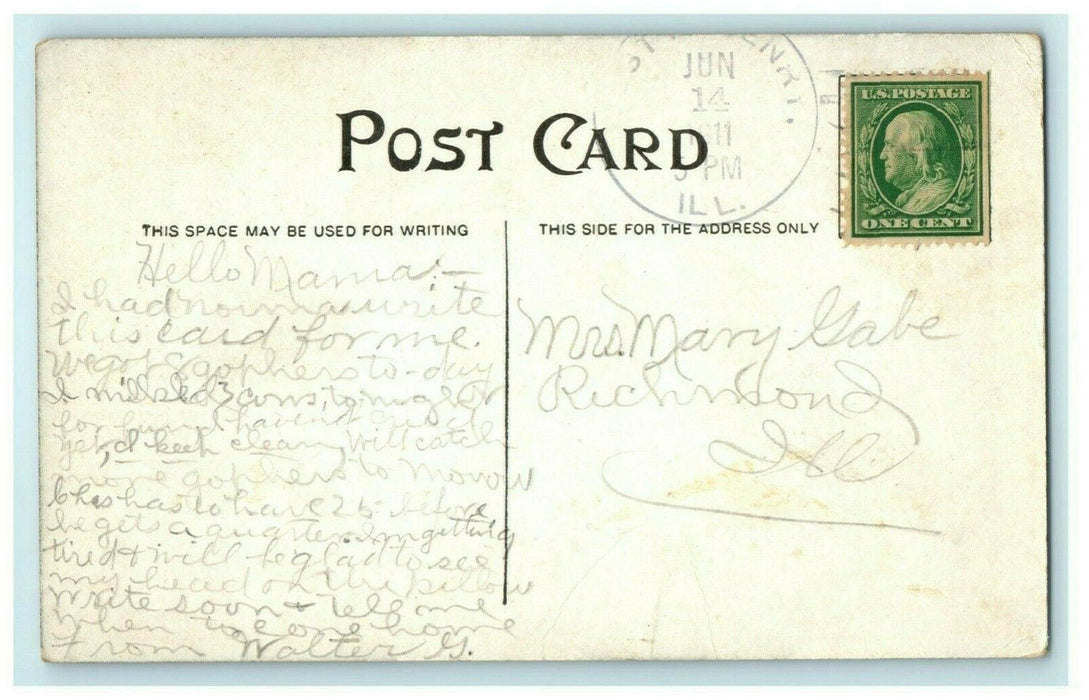 JUN
14
1911
PM
ILL.
U.S. POSTAGE
ONE CENT
POST CARD
THIS SPACE MAY BE USED FOR WRITING
THIS SIDE FOR THE ADDRESS ONLY
Hello Mama:—
I had Norma write
this card for me.
We got 8 gophers to-day
I milked 3 cows, to night
for fun, havent
yet, I keep clean, Will catch
more gophers to Morow
Chas has to have 25 before
he gets a quarter. Im getting
tired & will be glad to see
my head on the pillow
Write soon & tell me
when to come home
From Walter G.
Mrs. Mary Gabe
Richmond
Ill